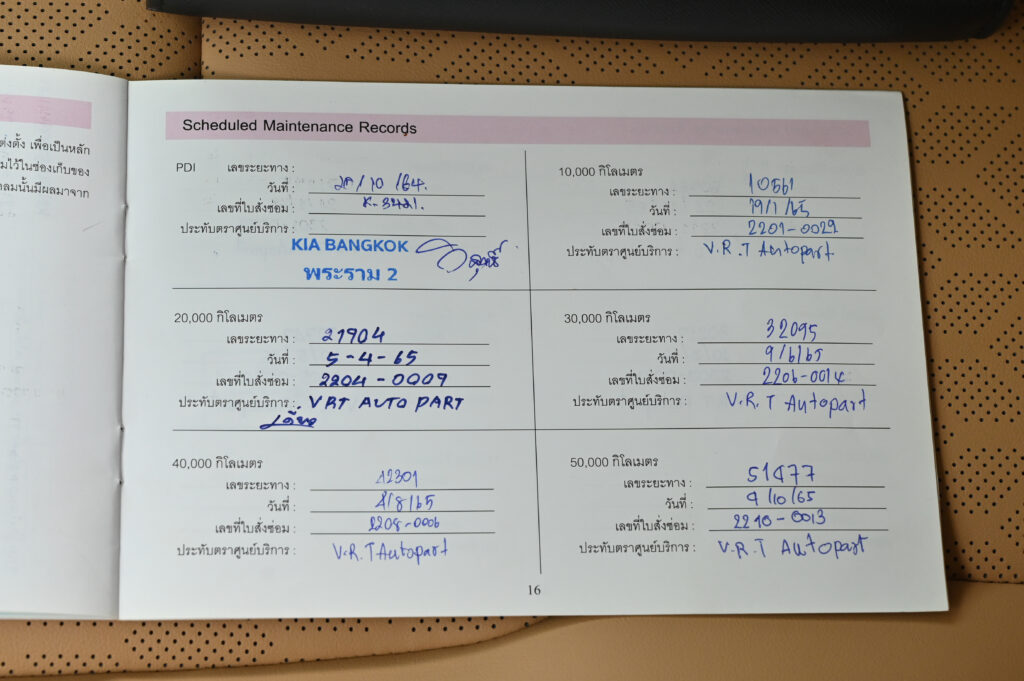 ต่งตั้ง เพื่อเป็นหลัก
มไว้ในช่องเก็บของ
ลมนั้นมีผลมาจาก
Scheduled Maintenance Records
PDI เลขระยะทาง :
วันที่ : 20/10/64.
เลขที่ใบสั่งซ่อม : K-3421.
ประทับตราศูนย์บริการ :
KIA BANGKOK
พระราม 2
10,000 กิโลเมตร
เลขระยะทาง : 10561
วันที่ : 19/1/65
เลขที่ใบสั่งซ่อม : 2201-0029
ประทับตราศูนย์บริการ : V.R.T Autopart
20,000 กิโลเมตร
เลขระยะทาง : 21904
วันที่ : 5-4-65
เลขที่ใบสั่งซ่อม : 2204-0009
ประทับตราศูนย์บริการ : VRT AUTO PART
30,000 กิโลเมตร
เลขระยะทาง : 32095
วันที่ : 9/6/65
เลขที่ใบสั่งซ่อม : 2206-0014
ประทับตราศูนย์บริการ : V.R.T Autopart
40,000 กิโลเมตร
เลขระยะทาง : 42301
วันที่ : 4/8/65
เลขที่ใบสั่งซ่อม : 2208-0006
ประทับตราศูนย์บริการ : V.R.T Autopart
50,000 กิโลเมตร
เลขระยะทาง : 51477
วันที่ : 9/10/65
เลขที่ใบสั่งซ่อม : 2210-0013
ประทับตราศูนย์บริการ : V.R.T Autopart
16